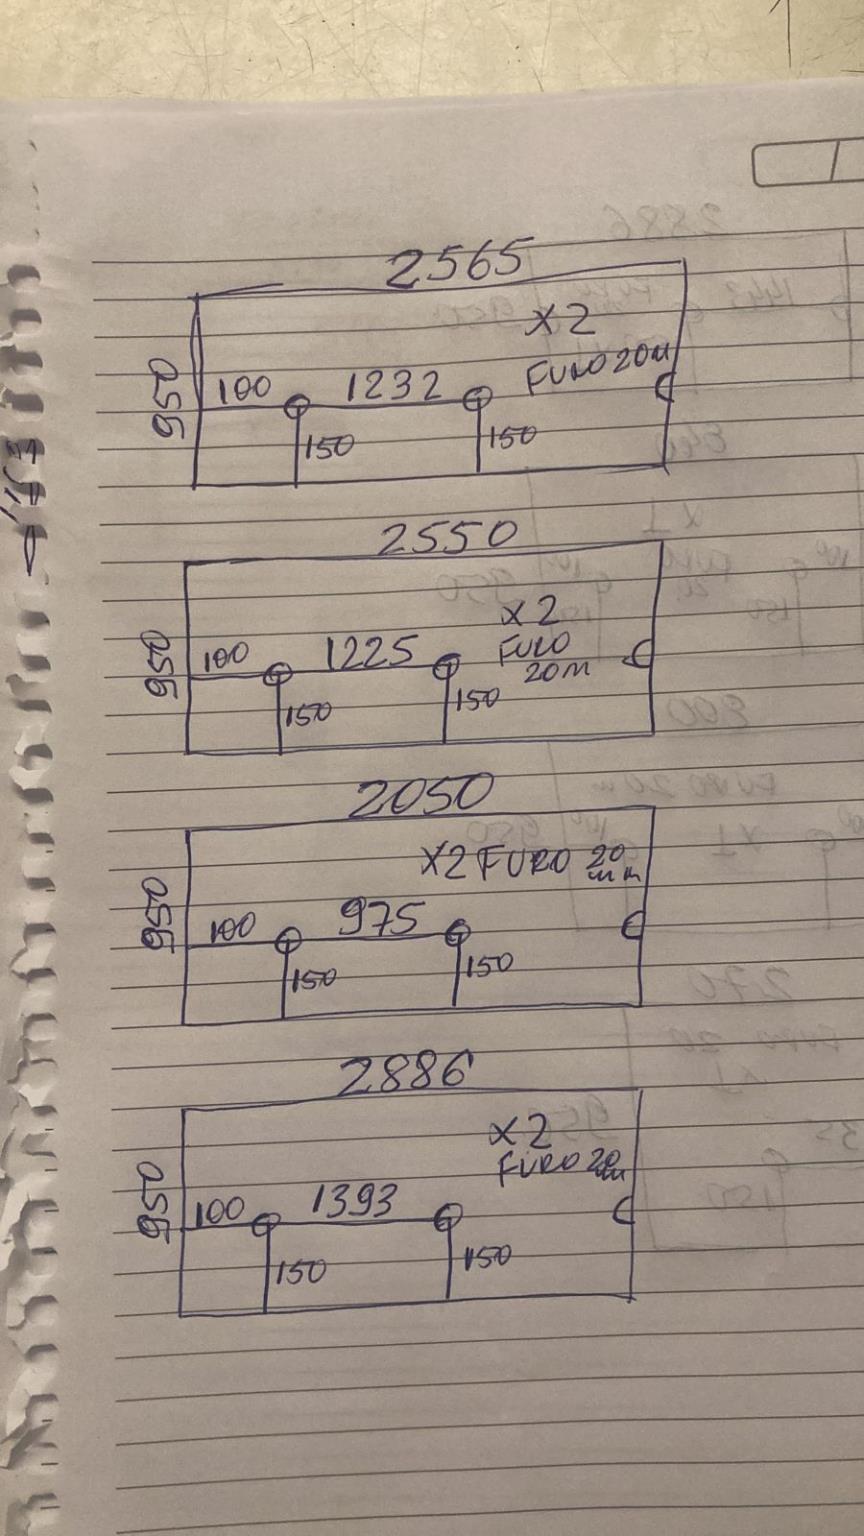 2565
X2
950
100
1232
FURO 20M
150
150
2550
X2
950
100
1225
FURO
20M
150
150
2050
X2 FURO 20
mm
950
100
975
150
150
2886
X2
950
100
1393
FURO 20
150
150